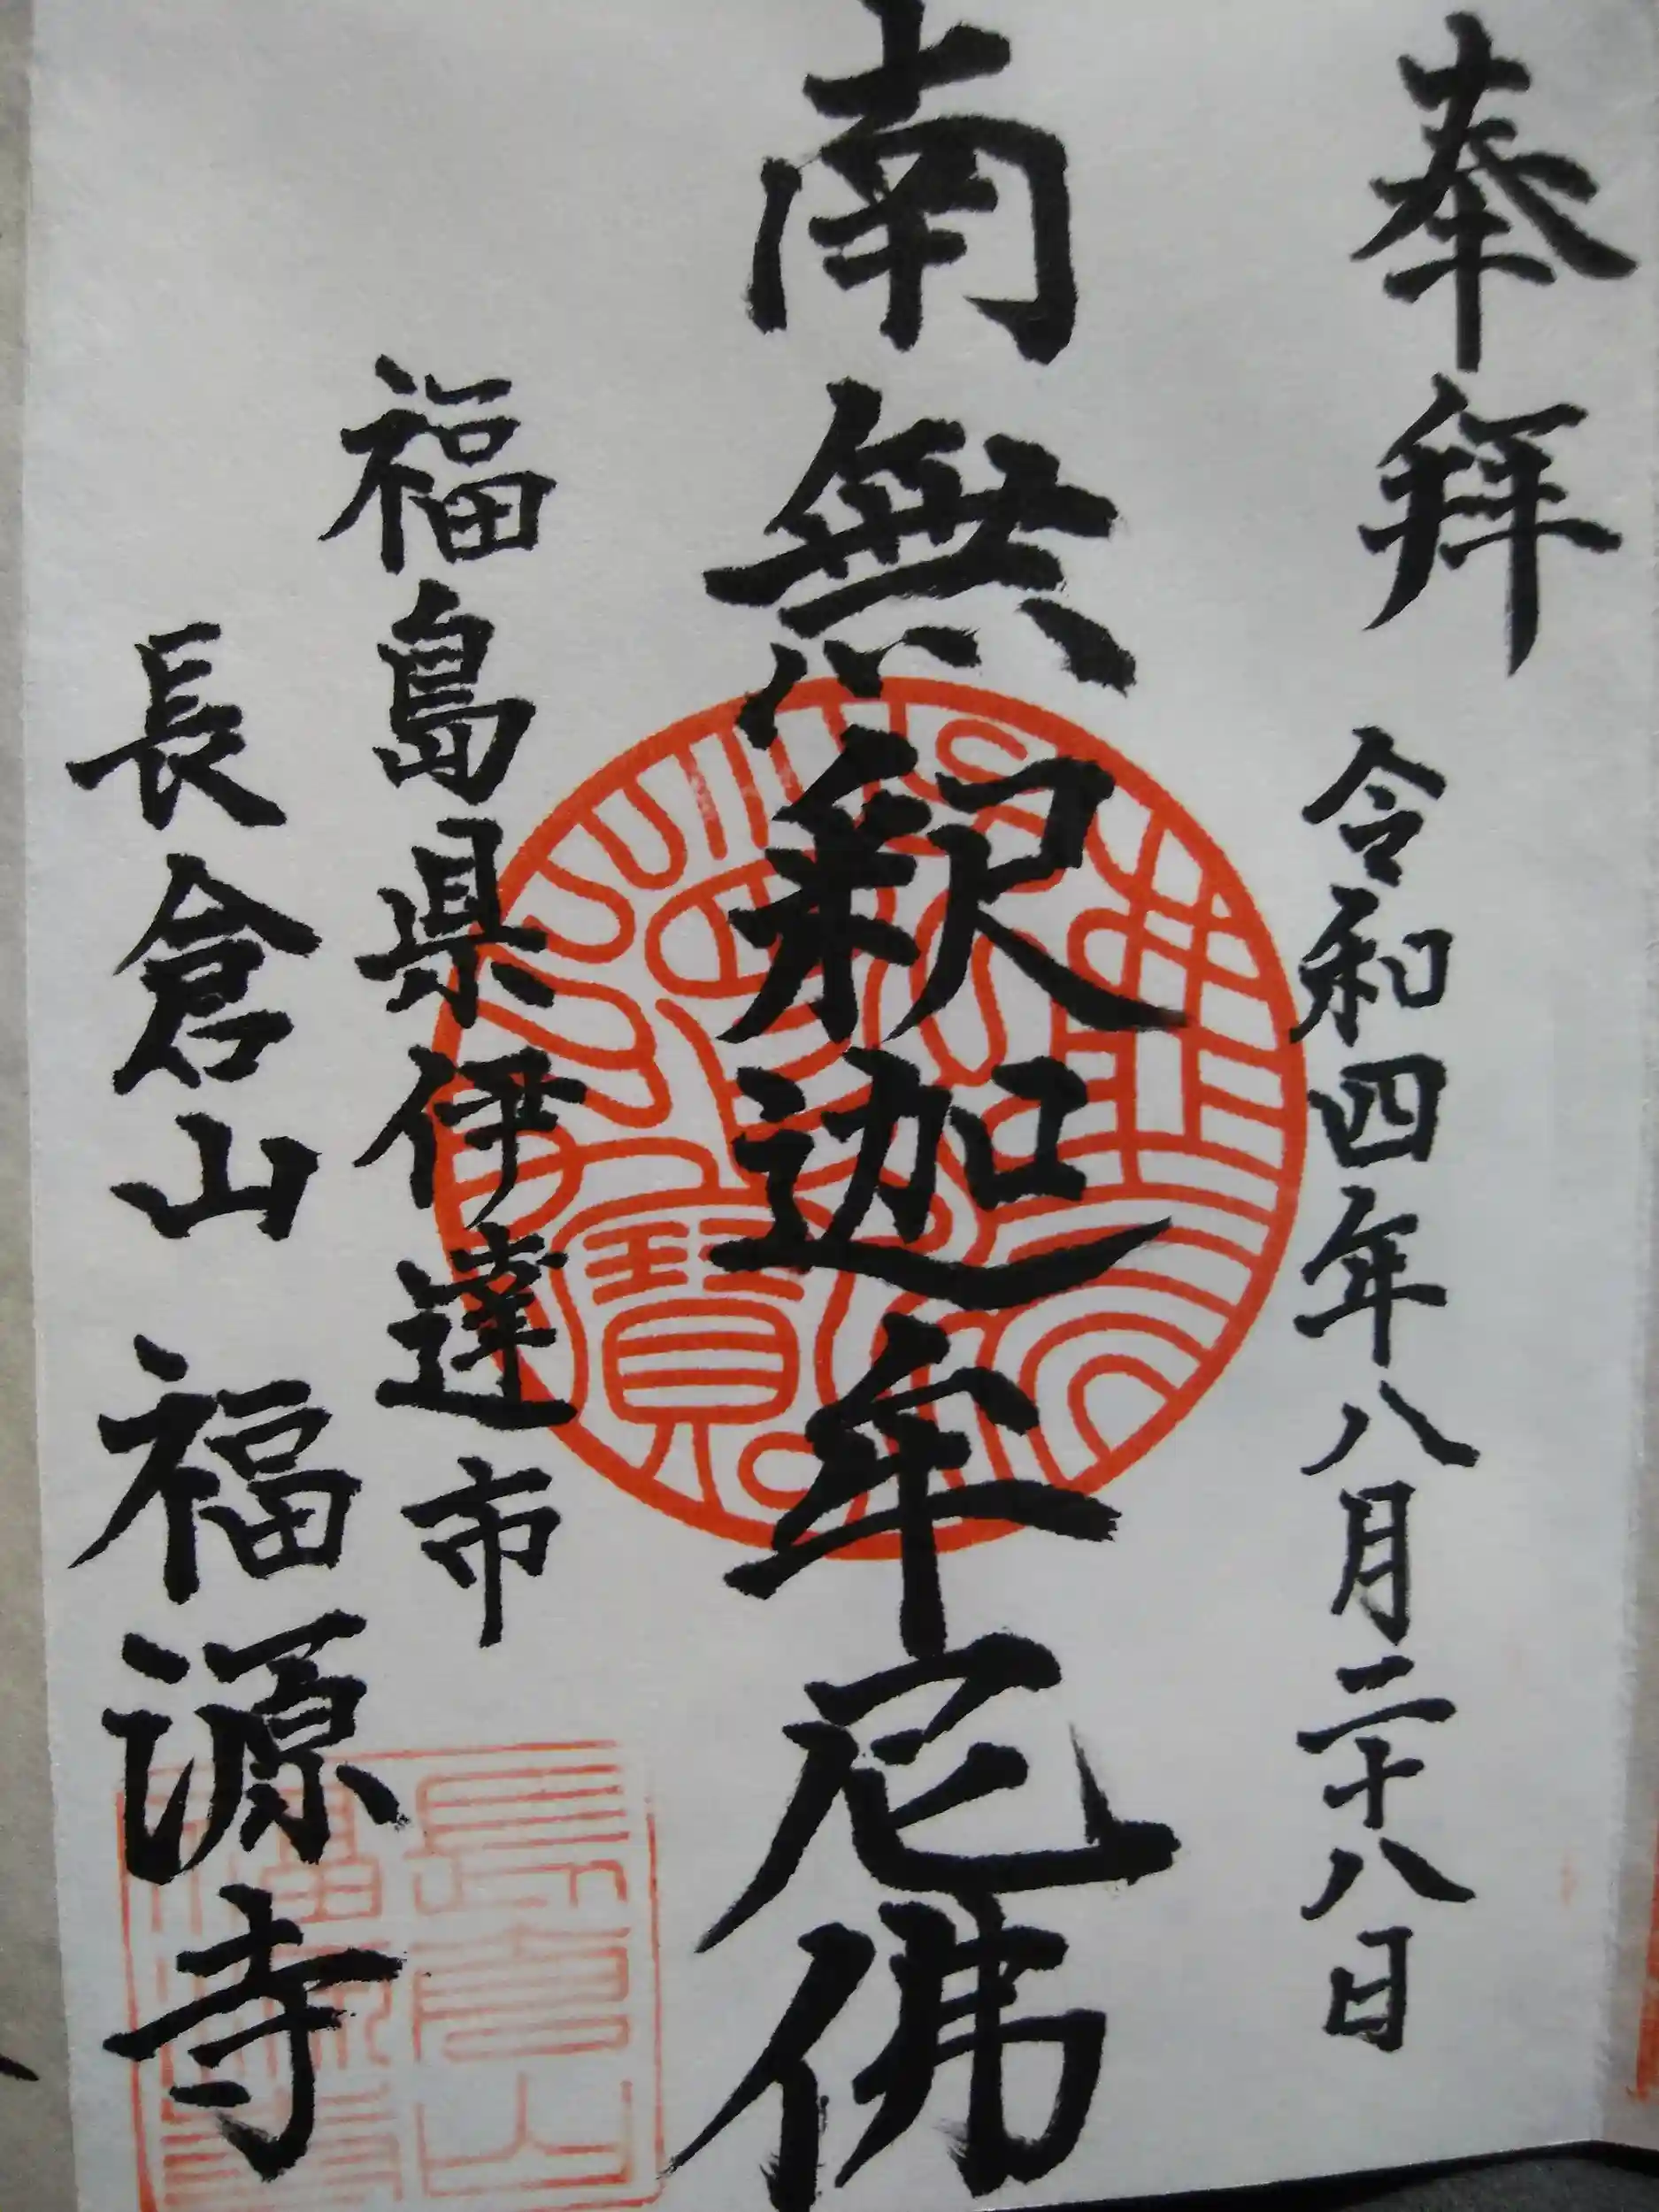 奉拝
令和四年八月二十八日
南無釈迦牟尼佛
福島県伊達市
長倉山 福源寺
長倉山
福源寺